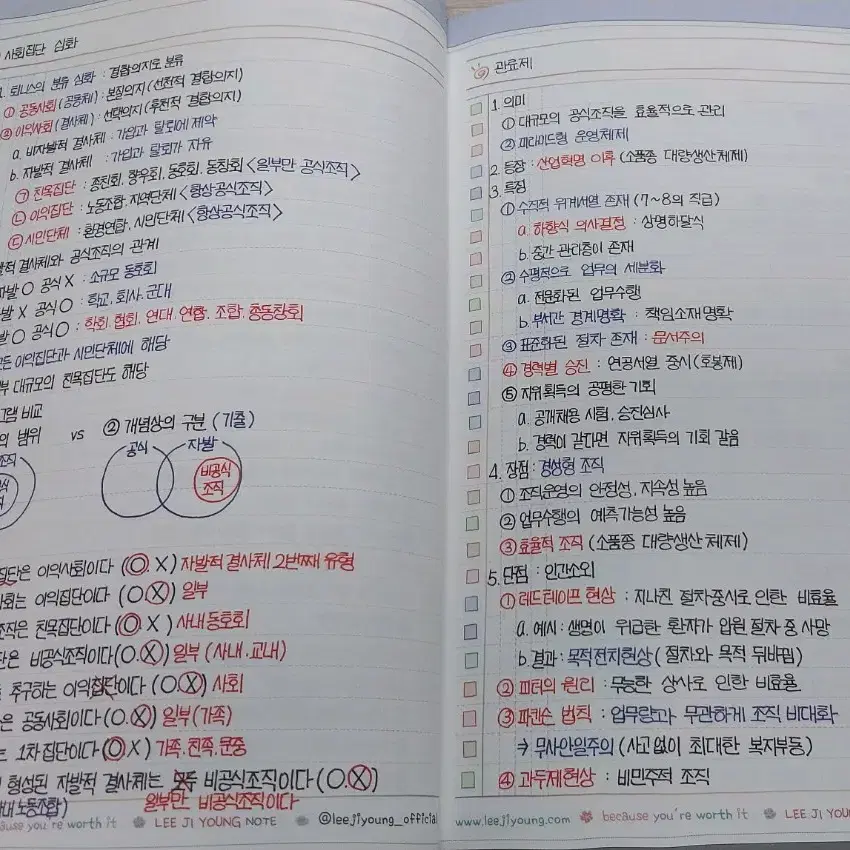 사회집단 심화
1. 퇴니스의 분류 심화 : 결합의지로 분류
① 공동사회 (공동체) : 본질의지 (선천적 결합의지)
② 이익사회 (결사체) : 선택의지 (후천적 결합의지)
a. 비자발적 결사체 : 가입과 탈퇴에 제약
b. 자발적 결사체 : 가입과 탈퇴가 자유
㉠ 친목집단 : 종친회, 향우회, 동호회, 동창회 <일부만 공식조직>
㉡ 이익집단 : 노동조합, 지역단체 <항상공식조직>
㉢ 시민단체 : 환경연합, 시민단체 <항상공식조직>
발적 결사체와 공식조직의 관계
자발 O 공식 X : 소규모 동호회
발 X 공식 O : 학교, 회사, 군대
발 O 공식 O : 학회, 협회, 연대, 연합, 조합, 총동창회
모든 이익집단과 시민단체에 해당
부 대규모의 친목집단도 해당
그램 비교
의 범위 vs ② 개념상의 구분 (기출)
조직
공식 자발
비공식
조직
집단은 이익사회이다 (O. X) 자발적 결사체 2번째 유형
사회는 이익집단이다 (O X) 일부
조직은 친목집단이다 (O X) 사내동호회
단은 비공식조직이다 (O. X) 일부 (사내, 교내)
추구하는 이익집단이다 (O. X) 사회
은 공동사회이다 (O. X) 일부 (가족)
는 1차 집단이다 (O X) 가족, 친족, 문중
형성된 자발적 결사체는 모두 비공식조직이다 (O. X)
내 노동조합) 일부만 비공식조직이다
because you're worth it LEE JI YOUNG NOTE @leejiyoung_official
관료제
1. 의미
① 대규모의 공식조직을 효율적으로 관리
② 피라미드형 운영체제
2. 등장 : 산업혁명 이후 (소품종 대량생산체제)
3. 특징
① 수직적 위계서열 존재 (7~8의 직급)
a. 하향식 의사결정 : 상명하달식
b. 중간 관리층이 존재
② 수평적으로 업무의 세분화
a. 전문화된 업무수행
b. 부서간 경계명확 : 책임소재 명확
③ 표준화된 절차 존재 : 문서주의
④ 경력별 승진 : 연공서열 중시 (호봉제)
⑤ 지위획득의 공평한 기회
a. 공개채용 시험, 승진심사
b. 경력이 같다면 지위획득의 기회 같음
4. 장점 : 경성형 조직
① 조직운영의 안정성, 지속성 높음
② 업무수행의 예측가능성 높음
③ 효율적 조직 (소품종 대량생산 체제)
5. 단점 : 인간소외
① 레드테이프 현상 : 지나친 절차중시로 인한 비효율
a. 예시 : 생명이 위급한 환자가 입원 절차 중 사망
b. 결과 : 목적전치현상 (절차와 목적 뒤바뀜)
② 피터의 원리 : 무능한 상사로 인한 비효율
③ 파킨슨 법칙 : 업무량과 무관하게 조직 비대화
→ 무사안일주의 (사고없이 최대한 복지부동)
④ 과두제현상 : 비민주적 조직
www.leejiyoung.com because you're worth it LEE JI YOUNG